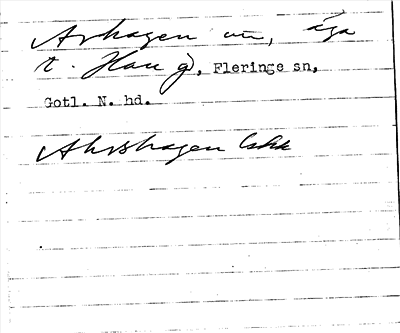 Arhagen un, äga
t. Hau g), Fleringe sn,
Gotl. N. hd.
Ahrshagen